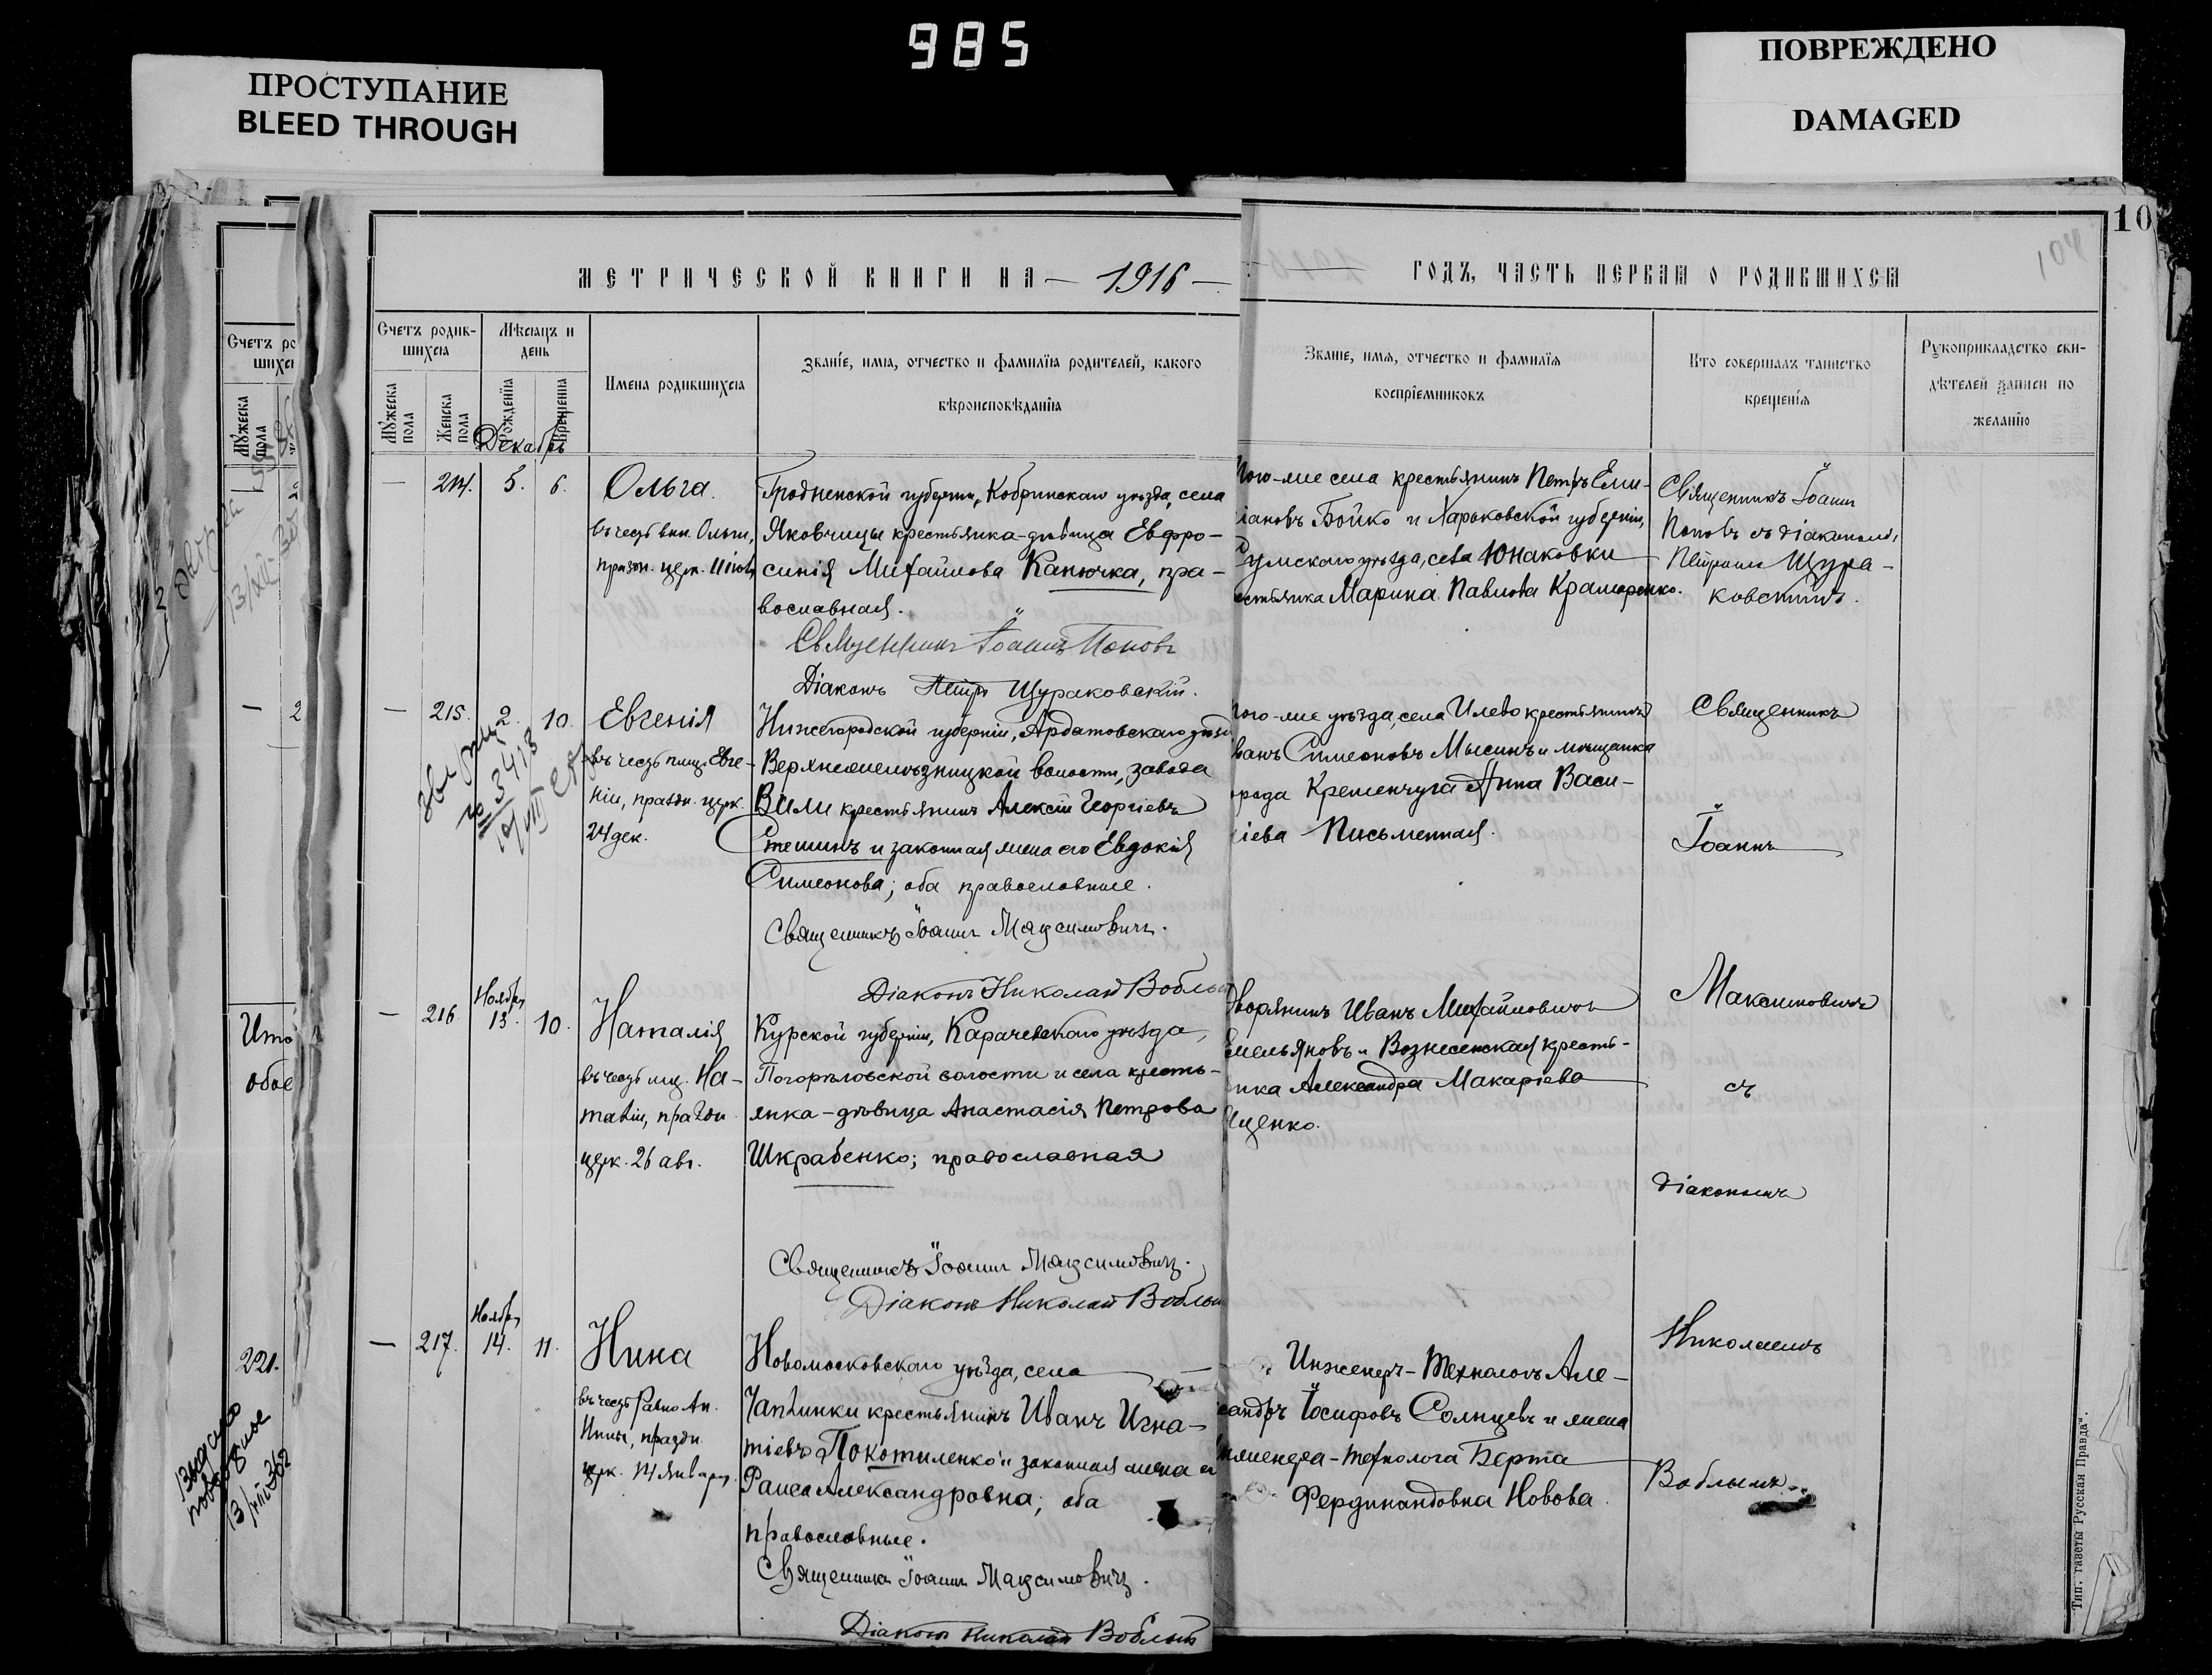 985
ПРОСТУПАНИЕ
BLEED THROUGH
ПОВРЕЖДЕНО
DAMAGED
10
МЕТРИЧЕСКОЙ КНИГИ НА — 1916 — ГОДЪ, ЧАСТЬ ПЕРВАЯ О РОДИВШИХСЯ
Счетъ родив-
шихся
Мѣсяцъ и
день
Имена родившихся
Званіе, имя, отчество и фамилія родителей, какого
вѣроисповѣданія
Званіе, имя, отчество и фамилія
воспріемниковъ
Кто совершалъ таинство
крещенія
Рукоприкладство сви-
дѣтелей записи по
желанію
Мужеска
пола
Женска
пола
Рожденія
Крещенія
Декабрь
— 214. 5. 6.
Ольга.
въ честь вкн. Ольги,
праздн. церк.
Гродненской губерніи, Кобринскаго уѣзда, села
Яковчицы крестьянка-дѣвица Евфро-
синія Михайлова Канючка, пра-
вославная.
Священникъ Іоаннъ Поповъ
Діаконъ Петръ Щураковскій.
того-же села крестьянинъ Петръ Еми-
ліановъ Бойко и Харьковской губерніи,
Сумскаго уѣзда, села Юнаковки
крестьянка Марина Павлова Крамаренко.
Священникъ Іоаннъ
Поповъ съ діакономъ
Петромъ Щура-
ковскимъ.
— 215. 2. 10.
Евгенія
въ честь пмц. Евге-
ніи, праздн. церк.
24 дек.
Нижегородской губерніи, Ардатовскаго уѣзда
волости, завода
Вили крестьянинъ Алексій Георгіевъ
Стешинъ и законная жена его Евдокія
Симеонова; оба православные.
Священникъ Іоаннъ Максимовичъ.
Діаконъ Николай Воблый
того-же уѣзда, села Илево крестьянинъ
Иванъ Симеоновъ Мысинъ и мѣщанка
города Кременчуга Анна Васи-
ліева Письменная.
Священникъ
Іоаннъ
Максимовичъ
съ
діакономъ
Николаемъ
Воблымъ.
— 216. Ноября 13. 10.
Наталія
въ честь мц. На-
таліи, праздн.
церк. 26 авг.
Курской губерніи, Карачевскаго уѣзда,
Погорѣловской волости и села кресть-
янка-дѣвица Анастасія Петрова
Шкрабенко; православная
Священникъ Іоаннъ Максимовичъ.
Діаконъ Николай Воблый
дворянинъ Иванъ Михайловичъ
Емельяновъ и Вознесенская кресть-
янка Александра Макаріева
Яценко.
— 217. Ноября 14. 11.
Нина
въ честь Равно Ап.
Нины, праздн.
церк. 14 января.
Новомосковскаго уѣзда, села
Чаплинки крестьянинъ Иванъ Игна-
тіевъ Покотиленко и законная жена его
Раиса Александровна; оба
православные.
Священникъ Іоаннъ Максимовичъ.
Діаконъ Николай Воблый
Инженеръ-технологъ Але-
ксандръ Іосифовъ Солнцевъ и жена
инженера-технолога Берта
Фердинандовна Новова.
Счетъ ро
шихся
Мужеска
пола
Ито
обое
221.
Тип. газеты „Русская Правда".